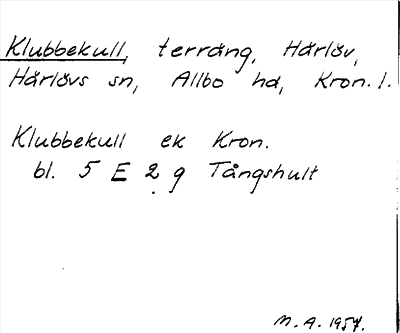 Klubbekull, terräng, Härlöv,
Härlövs sn, Allbo hd, Kron. l.
Klubbekull ek Kron.
bl. 5 E 2 g Tångshult
M. A. 1954.